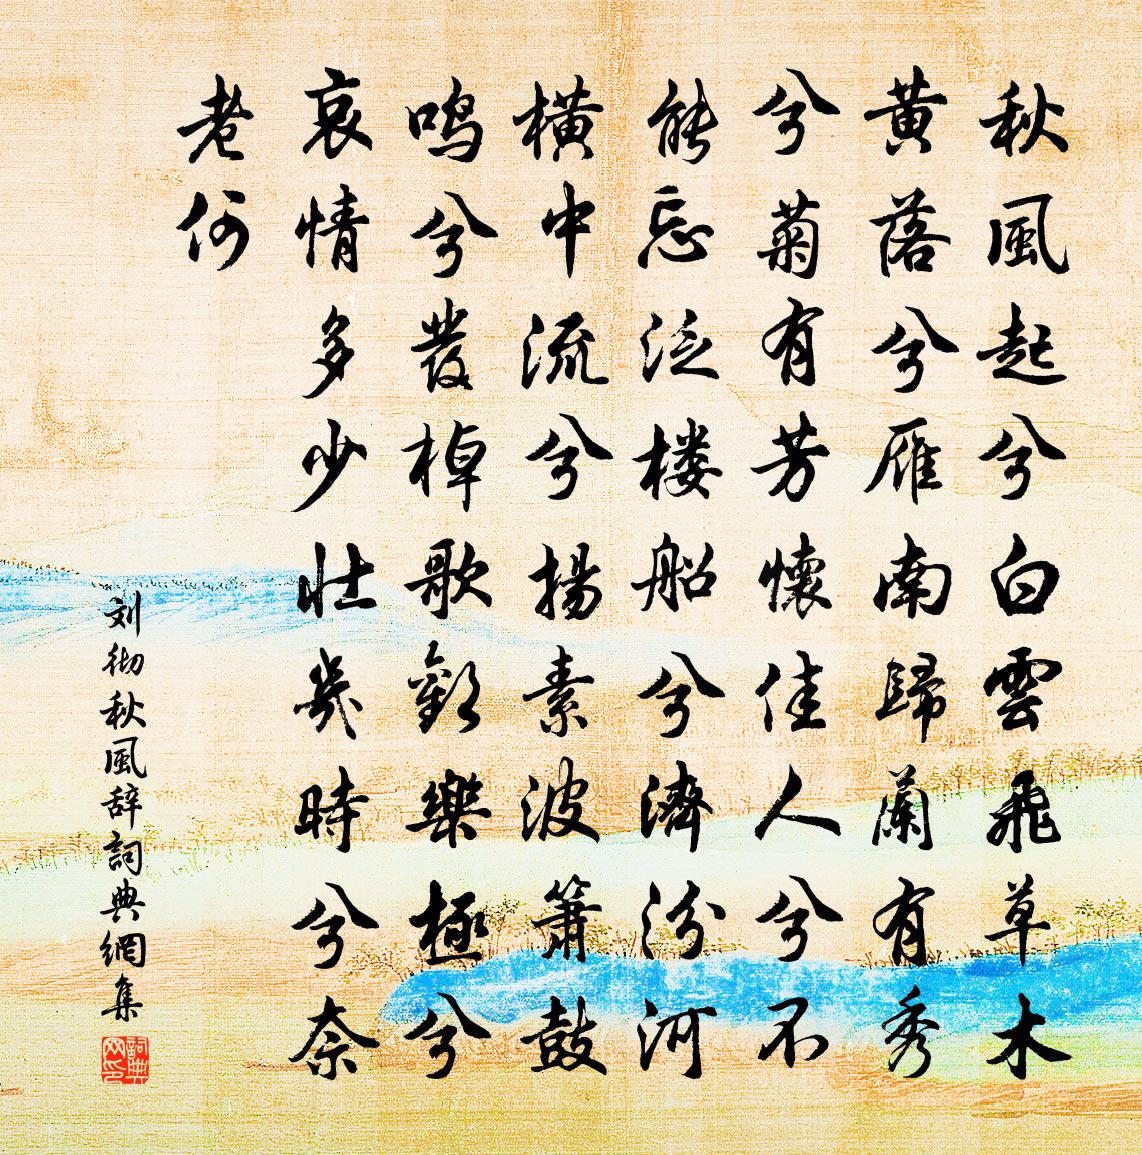 秋風起兮白雲飛草木
黄落兮雁南歸蘭有秀
兮菊有芳懷佳人兮不
能忘泛楼船兮濟汾河
横中流兮揚素波簫鼓
鸣兮發棹歌歡樂極兮
哀情多少壯幾時兮奈
老何
刘彻秋風辞詞典網集
詞典
网印